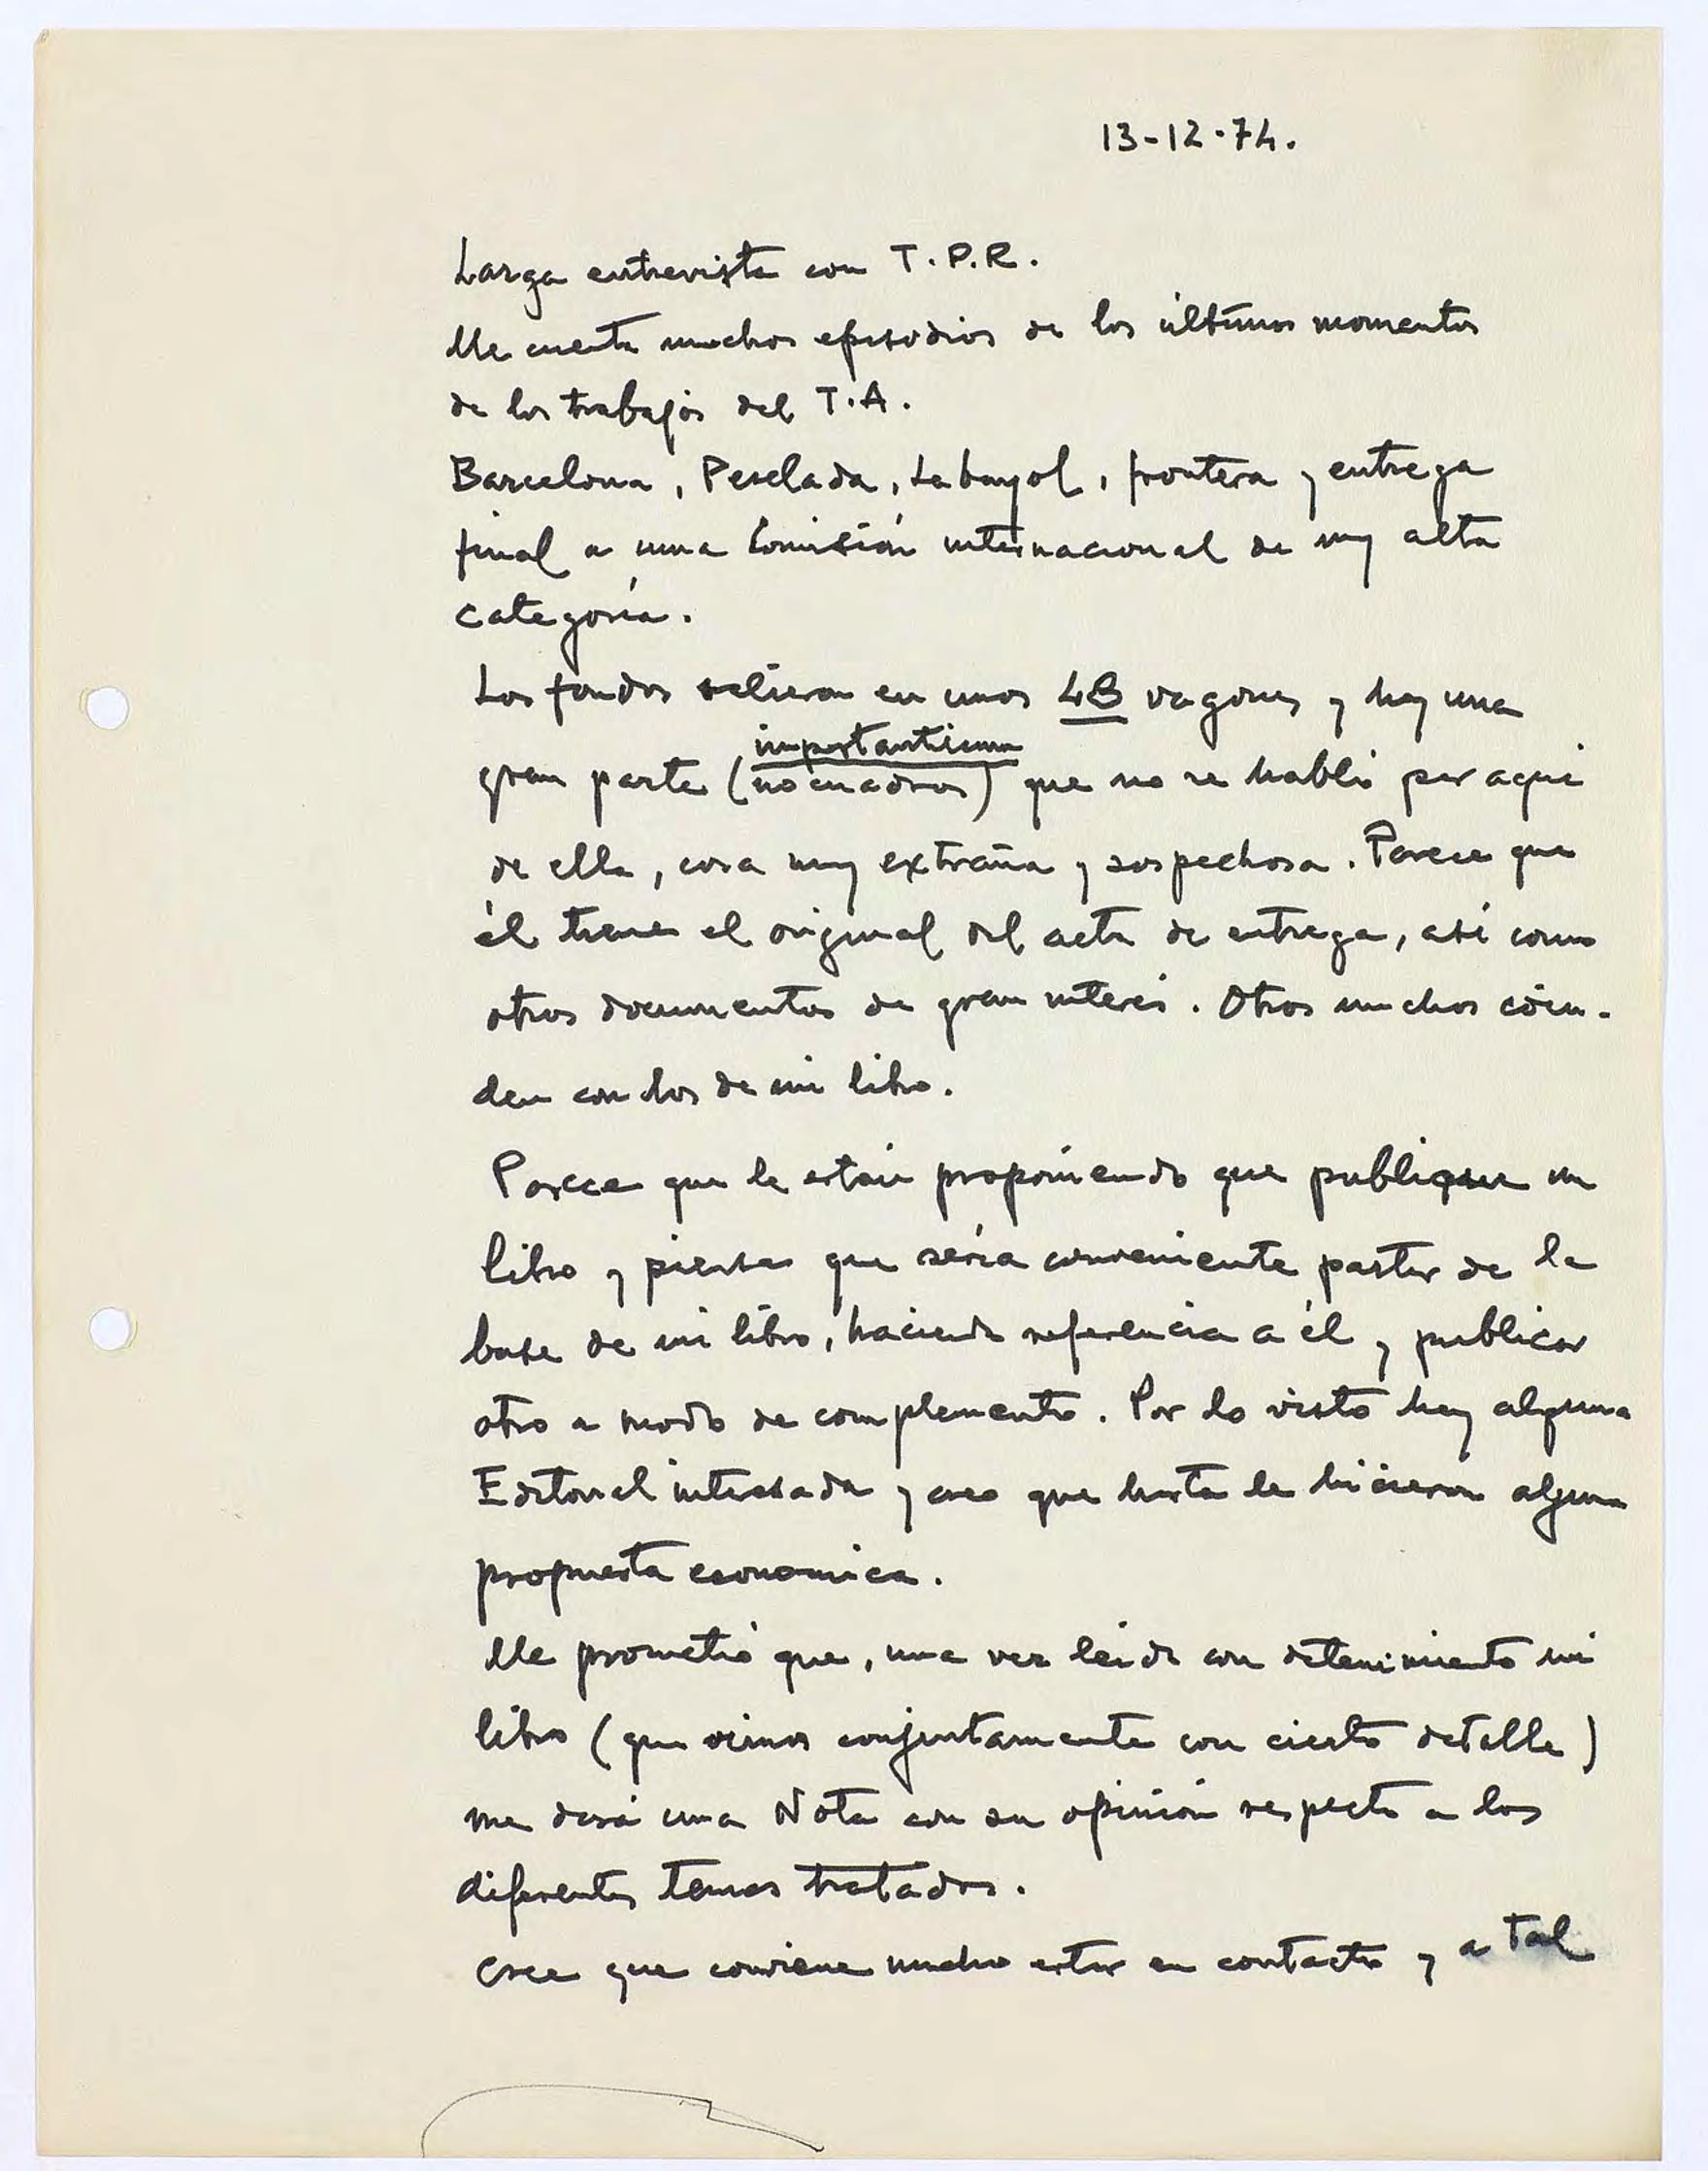 13-12-74.
Larga entrevista con T.P.R.
Me cuenta muchos episodios de los últimos momentos
de los trabajos del T.A.
Barcelona, Perelada, La bayol, frontera y entrega
final a una Comisión internacional de muy alta
categoría.
Los fondos salieron en unos 48 vagones y hay una
importantísima
gran parte (no cuadros) que no se habló por aquí
de ella, cosa muy extraña y sospechosa. Parece que
él tiene el original del acta de entrega, así como
otros documentos de gran interés. Otros muchos coin-
den con los de mi libro.
Parece que le están proponiendo que publique un
libro y piensa que sería conveniente partir de la
base de mi libro, haciendo referencia a él y publicar
otro a modo de complemento. Por lo visto hay alguna
Editorial interesada y creo que hasta le hicieron alguna
propuesta económica.
Me prometió que, una vez leido con detenimiento mi
libro (que vimos conjuntamente con cierto detalle)
me dará una Nota con su opinión respecto a los
diferentes temas tratados.
Cree que conviene mucho estar en contacto y a tal